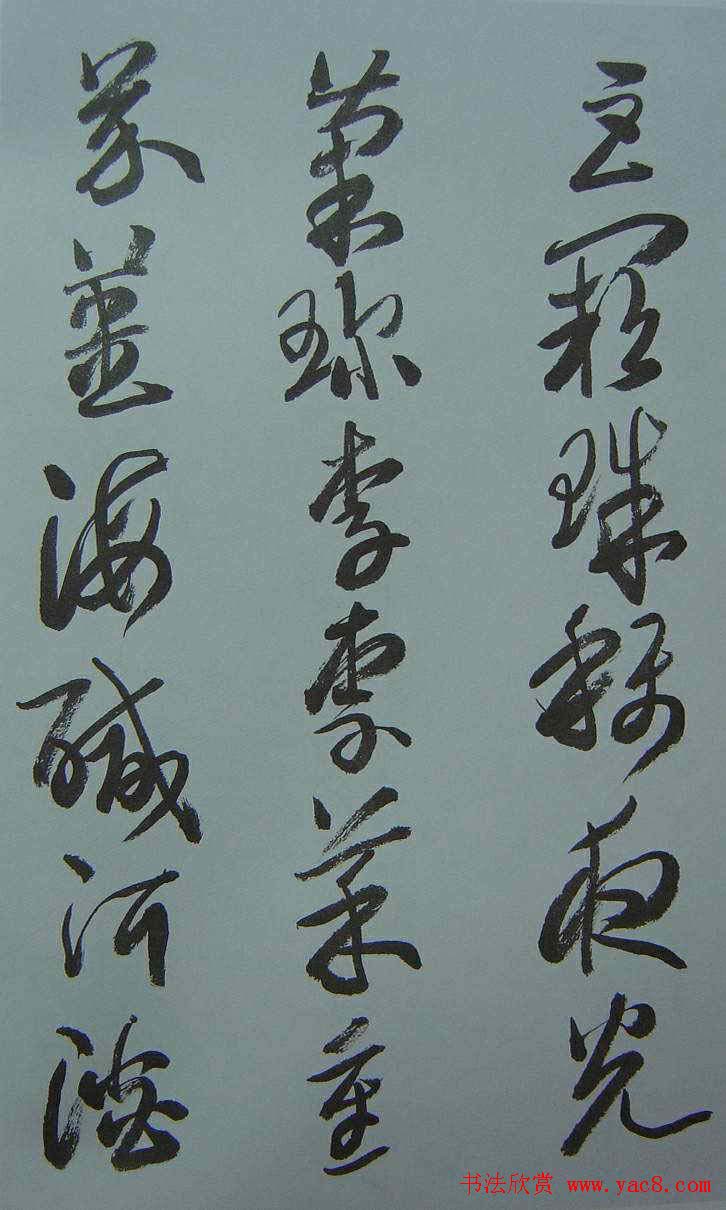 巨闕珠稱夜光
菓珍李柰菜重
芥薑海醎河澹
书法欣赏 www.yac8.com